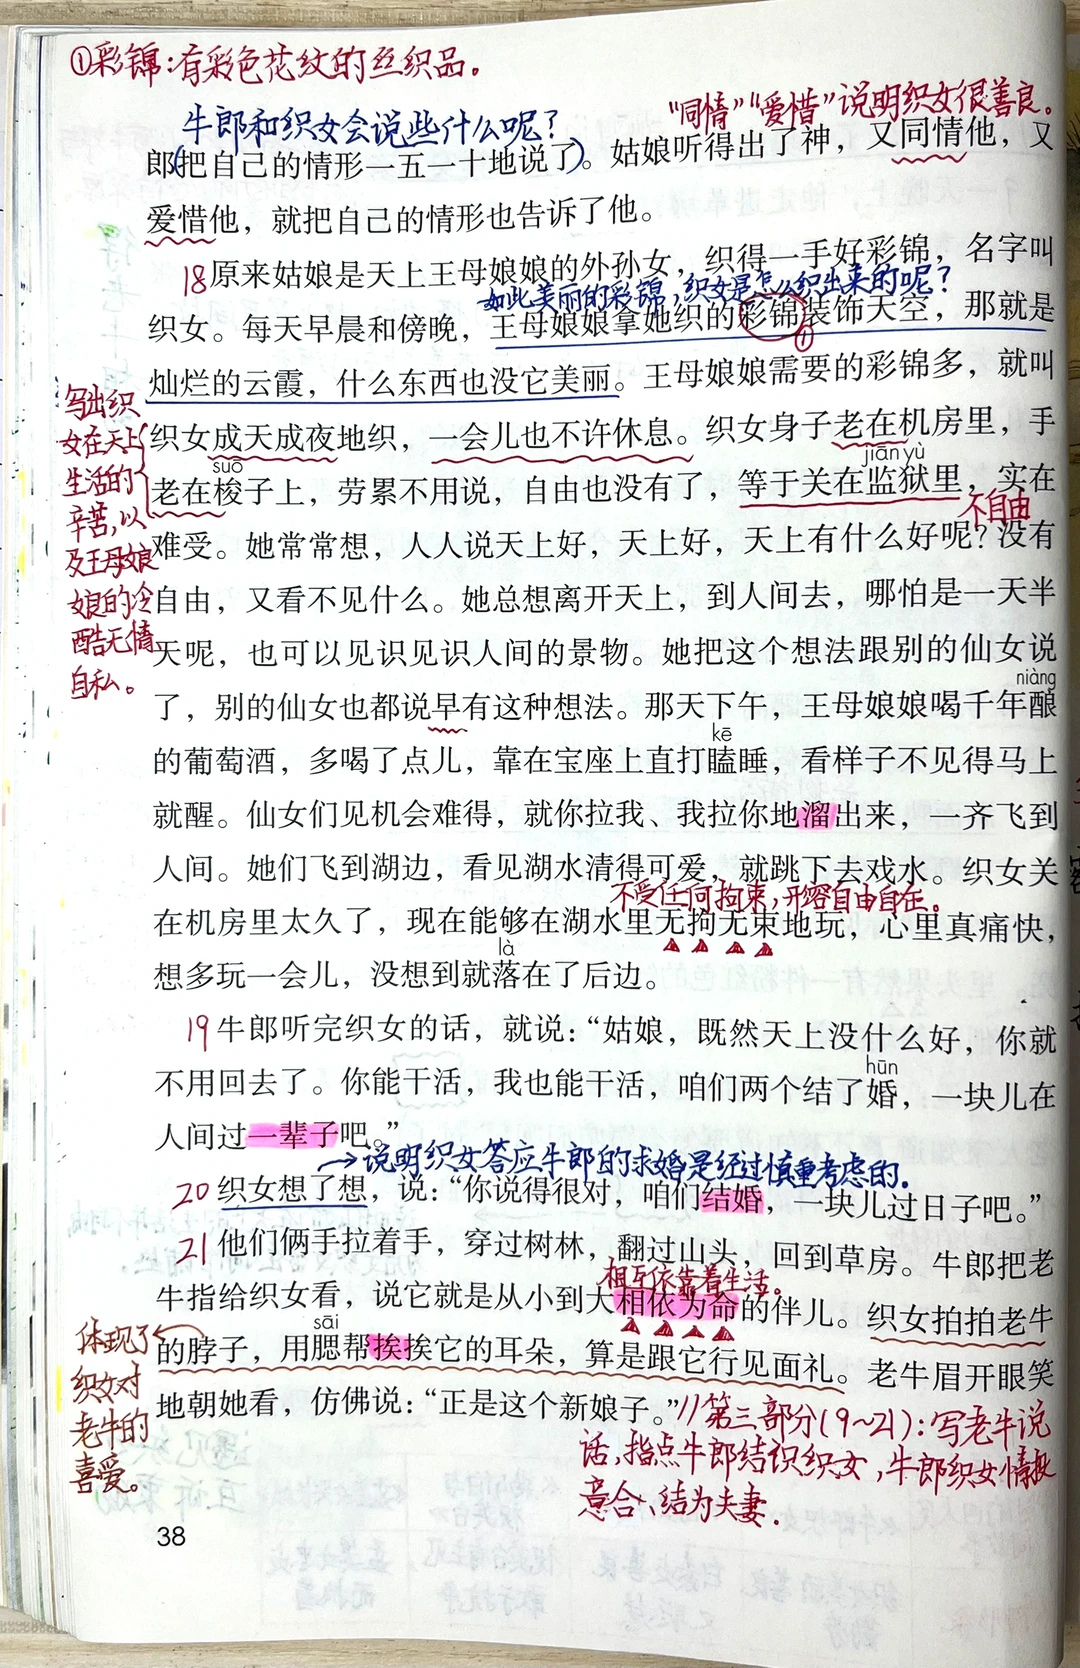 ①彩锦：有彩色花纹的丝织品。
"同情""爱惜"说明织女很善良。
牛郎和织女会说些什么呢？
郎(把自己的情形一五一十地说了)。姑娘听得出了神，又同情他，又
爱惜他，就把自己的情形也告诉了他。
18原来姑娘是天上王母娘娘的外孙女，织得一手好彩锦，名字叫
如此美丽的彩锦，织女是怎么织出来的呢？
织女。每天早晨和傍晚，王母娘娘拿她织的彩锦装饰天空，那就是
①
灿烂的云霞，什么东西也没它美丽。王母娘娘需要的彩锦多，就叫
写出织
女在天上
生活的
辛苦，以
及王母娘
娘的冷
酷无情
自私。
织女成天成夜地织，一会儿也不许休息。织女身子老在机房里，手
suō
jiān yù
老在梭子上，劳累不用说，自由也没有了，等于关在监狱里，实在
不自由
难受。她常常想，人人说天上好，天上好，天上有什么好呢？没有
自由，又看不见什么。她总想离开天上，到人间去，哪怕是一天半
天呢，也可以见识见识人间的景物。她把这个想法跟别的仙女说
niàng
了，别的仙女也都说早有这种想法。那天下午，王母娘娘喝千年酿
kē
的葡萄酒，多喝了点儿，靠在宝座上直打瞌睡，看样子不见得马上
就醒。仙女们见机会难得，就你拉我、我拉你地溜出来，一齐飞到
人间。她们飞到湖边，看见湖水清得可爱，就跳下去戏水。织女关
不受任何拘束，形容自由自在。
在机房里太久了，现在能够在湖水里无拘无束地玩，心里真痛快，
là
想多玩一会儿，没想到就落在了后边。
19牛郎听完织女的话，就说：“姑娘，既然天上没什么好，你就
hūn
不用回去了。你能干活，我也能干活，咱们两个结了婚，一块儿在
人间过一辈子吧。”
→说明织女答应牛郎的求婚是经过慎重考虑的。
20织女想了想，说：“你说得很对，咱们结婚，一块儿过日子吧。”
21他们俩手拉着手，穿过树林，翻过山头，回到草房。牛郎把老
相互依靠着生活。
牛指给织女看，说它就是从小到大相依为命的伴儿。织女拍拍老牛
sāi
的脖子，用腮帮挨挨它的耳朵，算是跟它行见面礼。老牛眉开眼笑
体现了
织女对
老牛的
喜爱。
地朝她看，仿佛说：“正是这个新娘子。”//第三部分(9~21)：写老牛说
话，指点牛郎结识织女，牛郎织女情投
意合、结为夫妻.
38